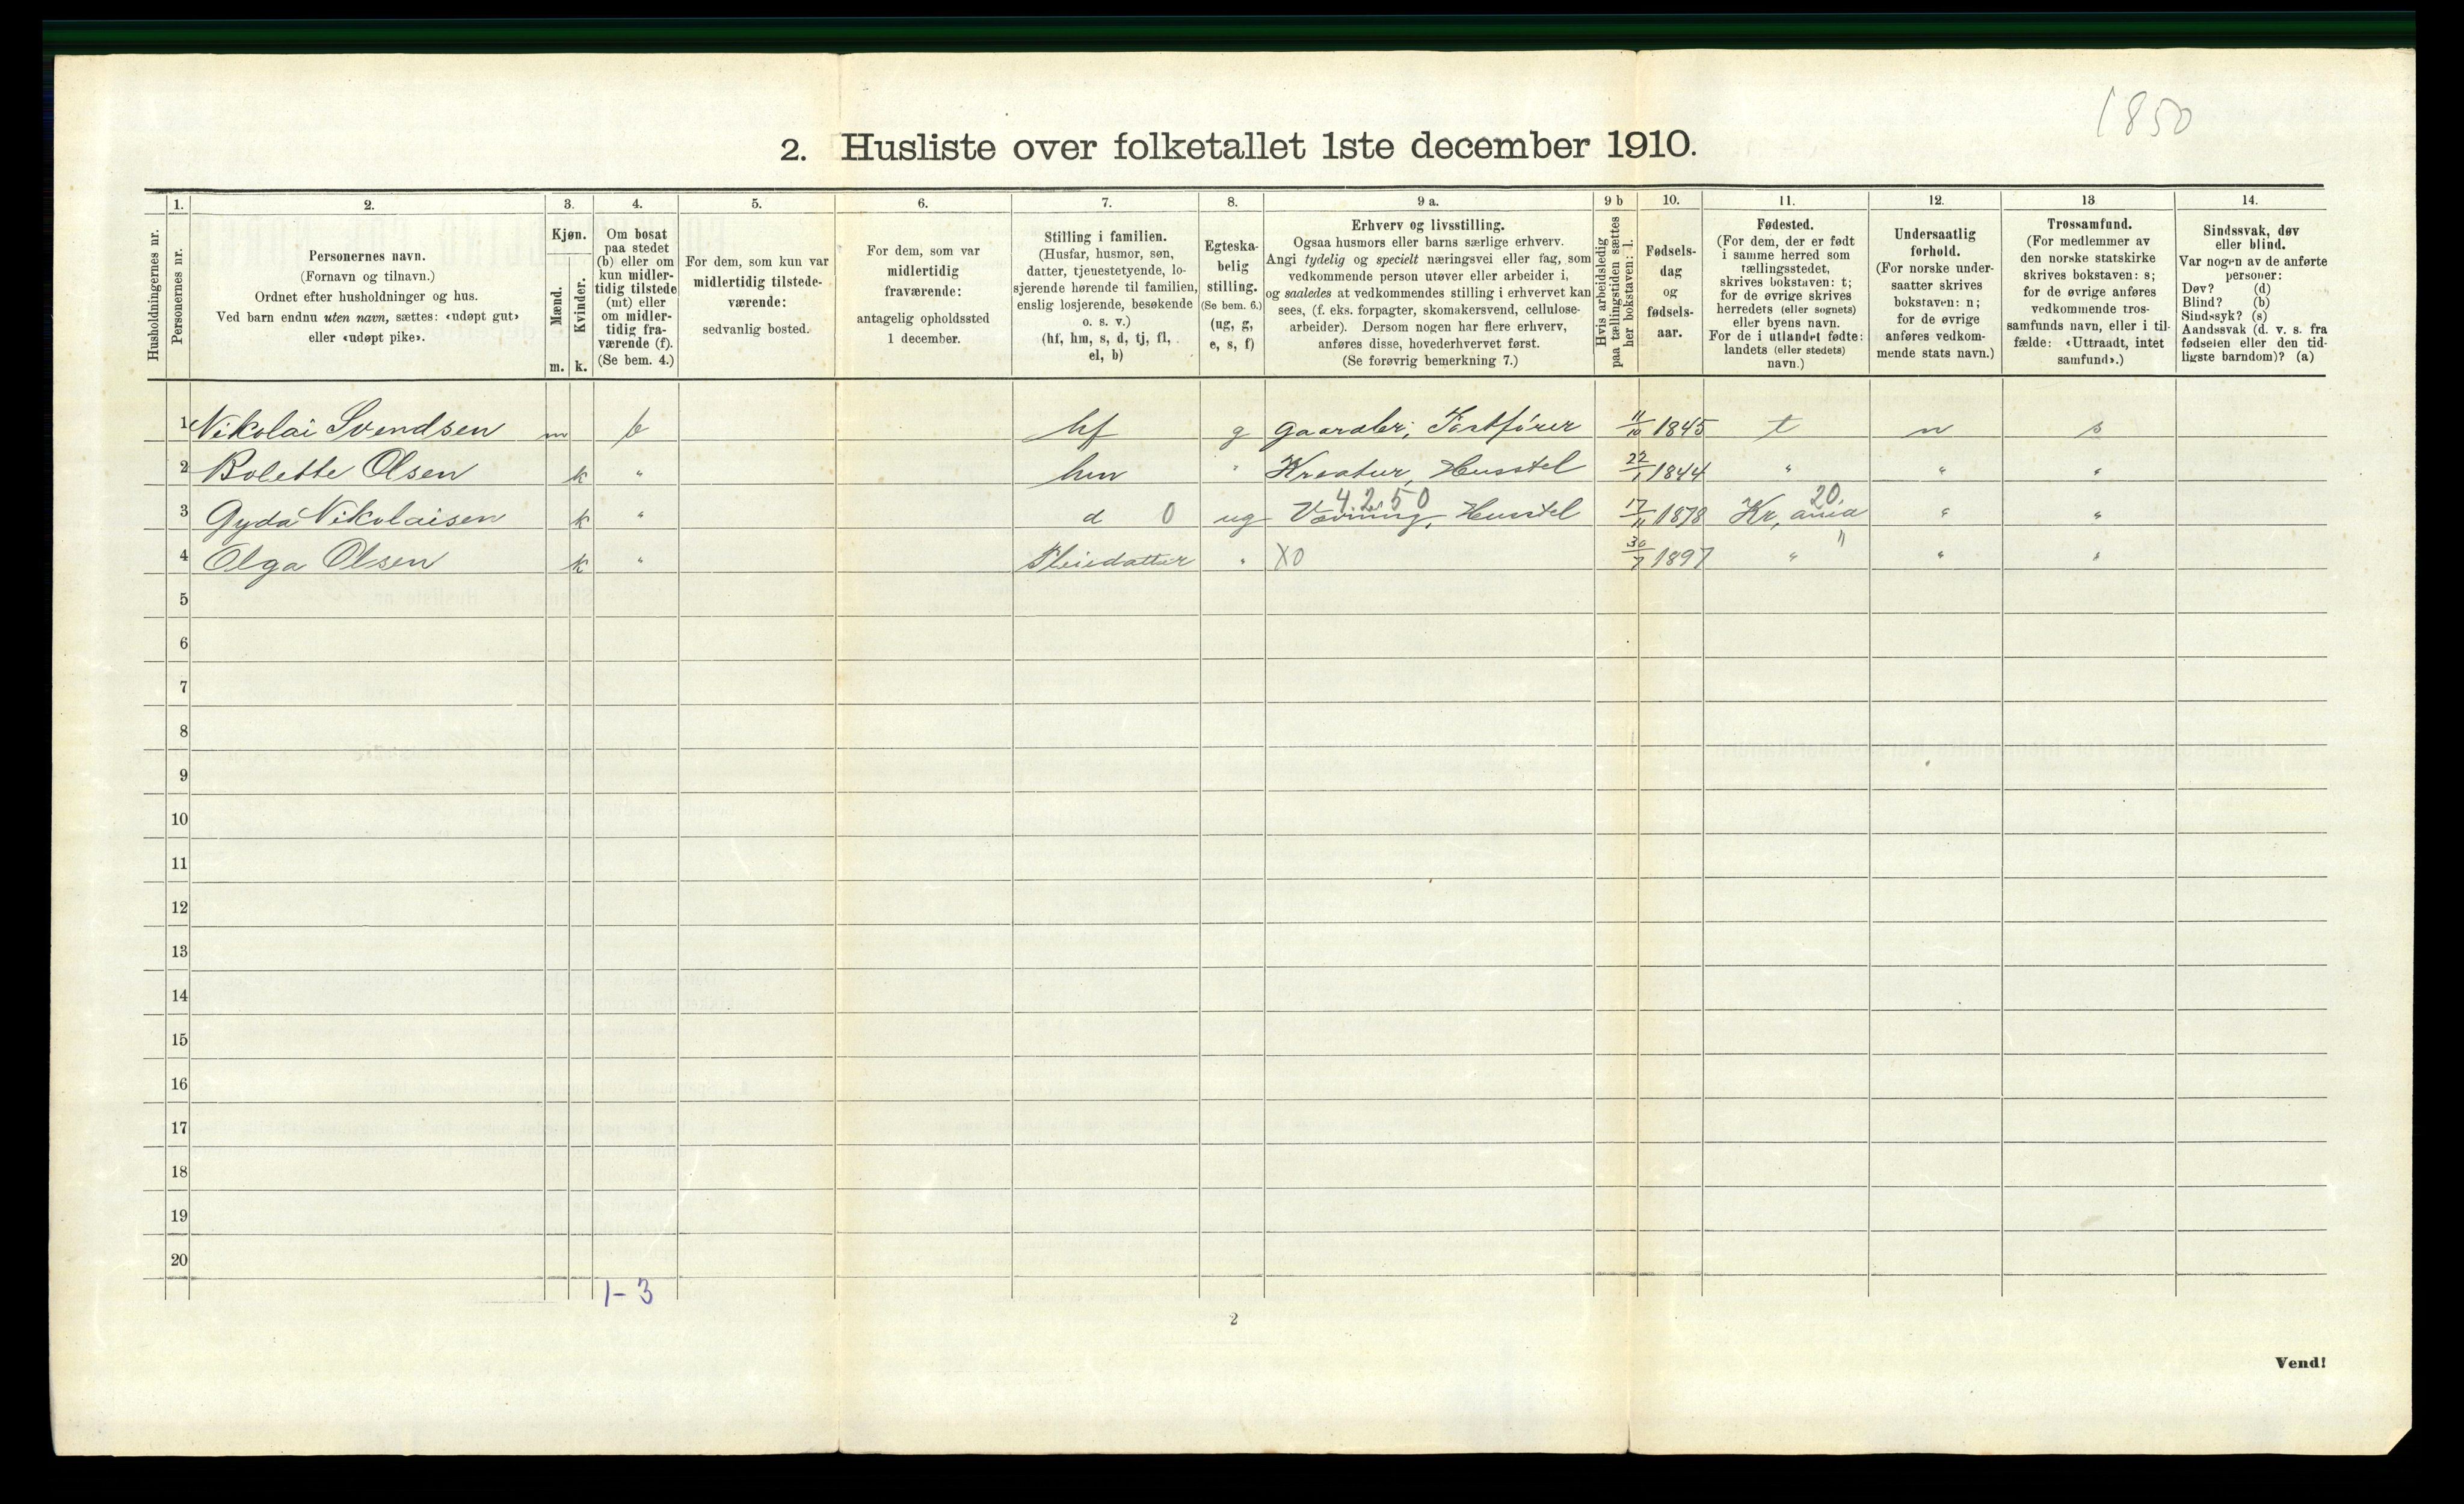 1850
2. Husliste over folketallet 1ste december 1910.
Husholdningernes nr.
1.
Personernes nr.
2.
Personernes navn.
(Fornavn og tilnavn.)
Ordnet efter husholdninger og hus.
Ved barn endnu uten navn, sættes: «udøpt gut»
eller «udøpt pike».
3.
Kjøn.
Mænd.
Kvinder.
m. k.
4.
Om bosat
paa stedet
(b) eller om
kun midler-
tidig tilstede
(mt) eller
om midler-
tidig fra-
værende (f).
(Se bem. 4.)
5.
For dem, som kun var
midlertidig tilstede-
værende:
sedvanlig bosted.
6.
For dem, som var
midlertidig
fraværende:
antagelig opholdssted
1 december.
7.
Stilling i familien.
(Husfar, husmor, søn,
datter, tjenestetyende, lo-
sjerende hørende til familien,
enslig losjerende, besøkende
o. s. v.)
(hf, hm, s, d, tj, fl,
el, b)
8.
Egteska-
belig
stilling.
(Se bem. 6.)
(ug, g,
e, s, f)
9 a.
Erhverv og livsstilling.
Ogsaa husmors eller barns særlige erhverv.
Angi tydelig og specielt næringsvei eller fag, som
vedkommende person utøver eller arbeider i,
og saaledes at vedkommendes stilling i erhvervet kan
sees, (f. eks. forpagter, skomakersvend, cellulose-
arbeider). Dersom nogen har flere erhverv,
anføres disse, hovederhvervet først.
(Se forøvrig bemerkning 7.)
9 b
Hvis arbeidsledig
paa tællingstiden sættes
her bokstaven: l.
10.
Fødsels-
dag
og
fødsels-
aar.
11.
Fødested.
(For dem, der er født
i samme herred som
tællingsstedet,
skrives bokstaven: t;
for de øvrige skrives
herredets (eller sognets)
eller byens navn.
For de i utlandet fødte:
landets (eller stedets)
navn.)
12.
Undersaatlig
forhold.
(For norske under-
saatter skrives
bokstaven: n;
for de øvrige
anføres vedkom-
mende stats navn.)
13
Trossamfund.
(For medlemmer av
den norske statskirke
skrives bokstaven: s;
for de øvrige anføres
vedkommende tros-
samfunds navn, eller i til-
fælde: «Uttraadt, intet
samfund».)
14.
Sindssvak, døv
eller blind.
Var nogen av de anførte
personer:
Døv? (d)
Blind? (b)
Sindssyk? (s)
Aandssvak (d. v. s. fra
fødselen eller den tid-
ligste barndom)? (a)
1 Nikolai Svendsen m b hf g Gaardbr; Postfører 11/10 1845 t n s
2 Bolette Olsen k " hm " Kreatur, Husstel 22/1 1844 " " "
4250 20
3 Gyda Nikolaisen k " d 0 ug Vævning, Husstel 17/11 1878 Kr, ania " "
4 Olga Olsen k " Pleiedatter " X0 30/7 1897 " " " "
5
6
7
8
9
10
11
12
13
14
15
16
17
18
19
20
1-3
2
Vend!